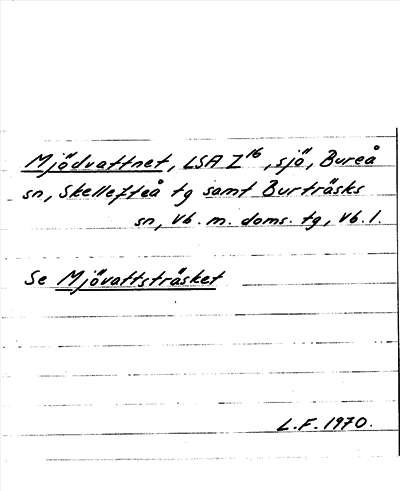 Mjödvattnet, LSA Z¹⁶, sjö, Bureå
sn, Skellefteå tg samt Burträsks
sn, Vb. m. doms. tg, Vb. l.
Se Mjövattsträsket
L.F. 1970.